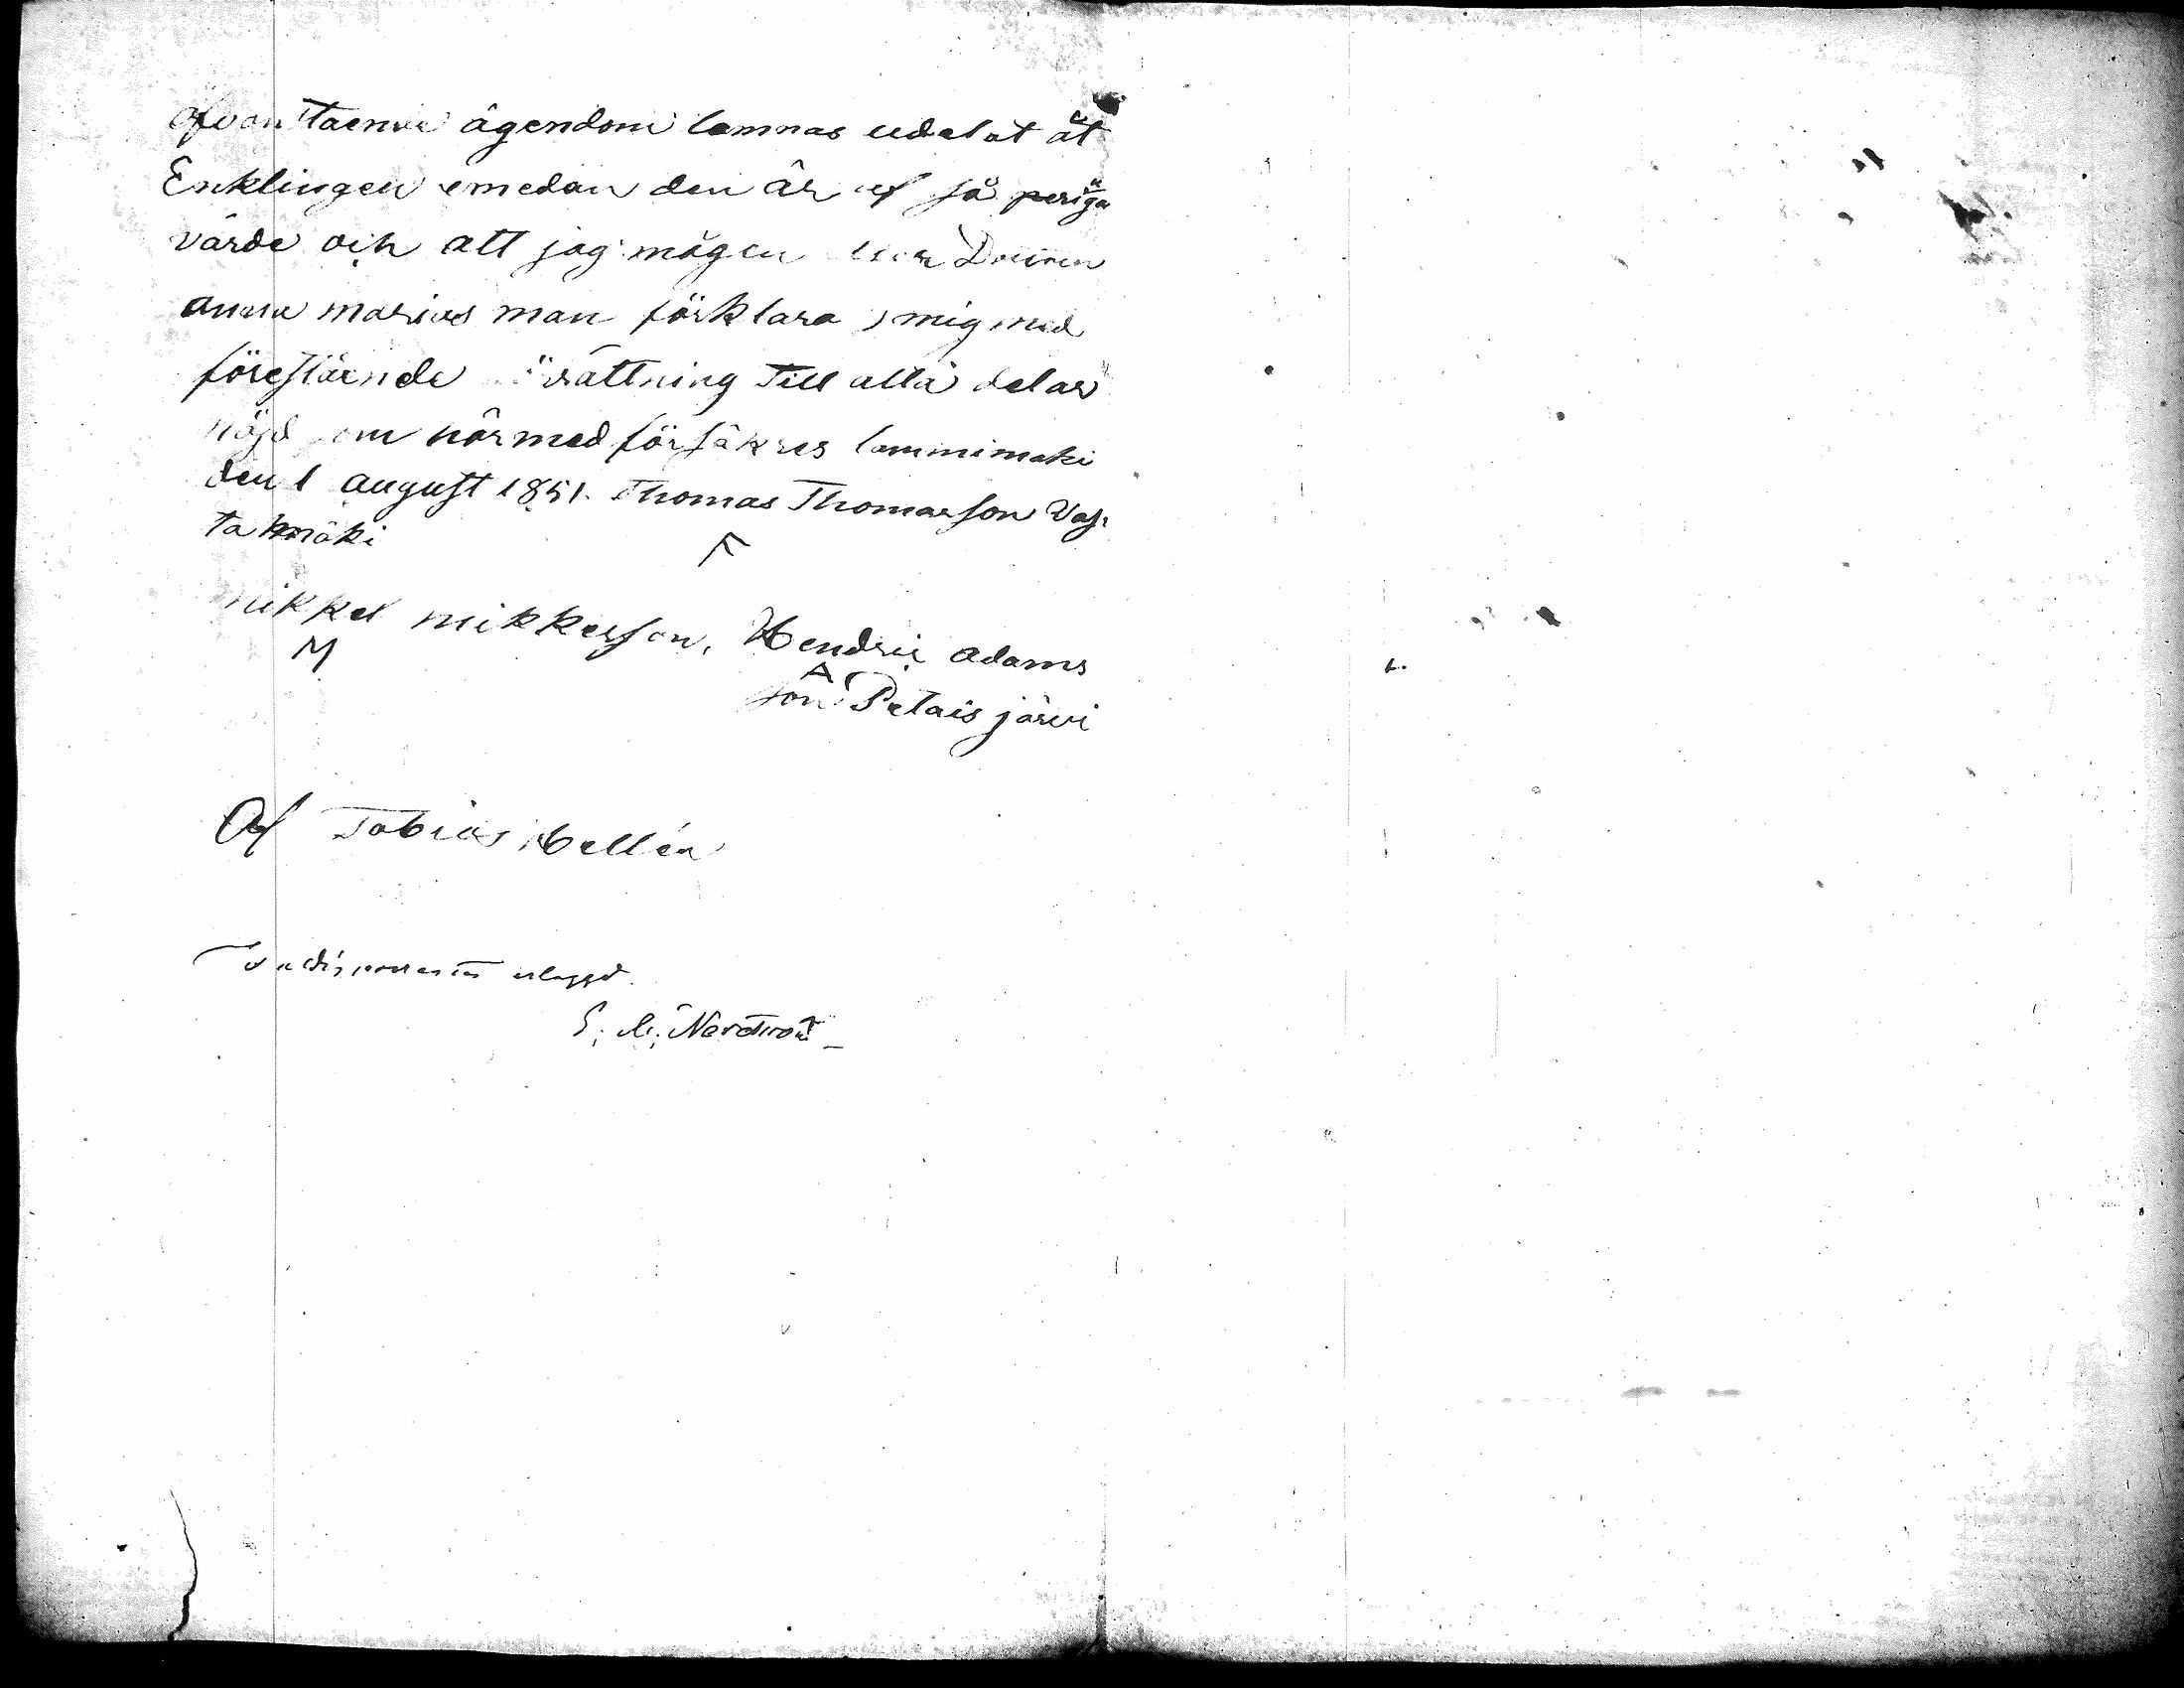 Ofvanstaende ägendom lamnas udelat åt
Enklingen emedan den är af så perîga
värde och att jag mågen
anna marias man förklara mig med
förestäende rättning Till alla delar
nöjd om härmed försäkres lammimaki
den 1 august 1851. Thomas Thomasson Vas
ta mäki
F
mikkel mikkelsson, Hendric adams
M
A son Petais järvi
Af Tobias Hellén
erlaggd.
Nordström